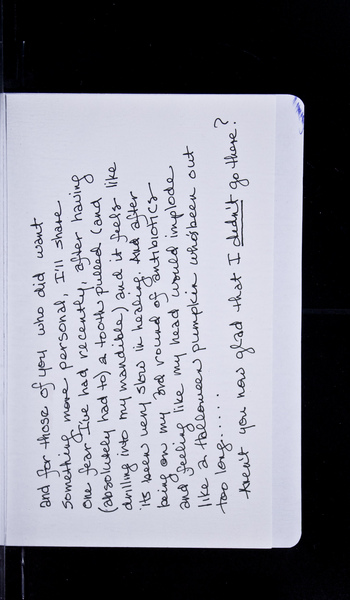 and for those of you who did want
something more personal, I'll share
one fear I've had recently, after having
(absolutely had to) a tooth pulled (and
drilling into my mandible) and it feels like
its been very slow in healing. And after
being on my 3rd round of antibiotics
and feeling like my head would implode
like a Halloween pumpkin who's been out
too long......
Aren't you now glad that I didn't go there?